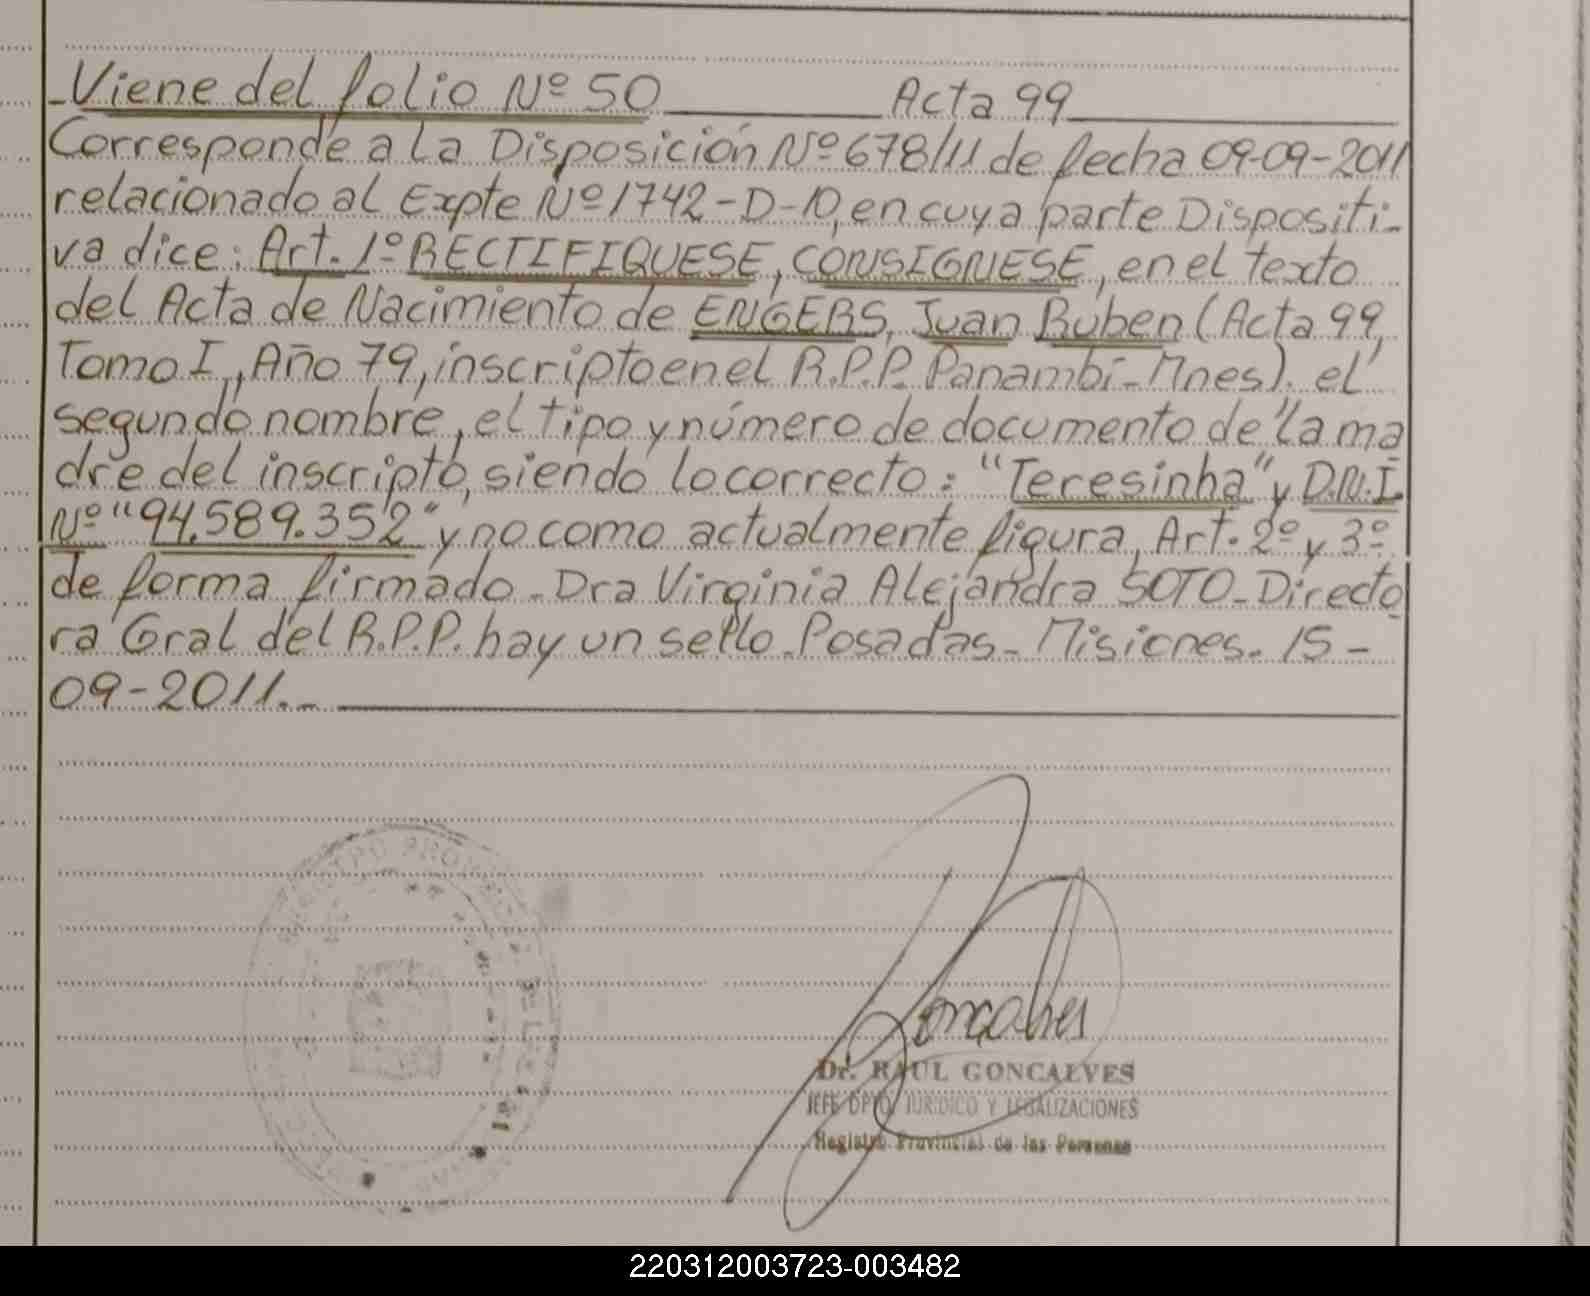 -Viene del folio Nº 50 Acta 99
Corresponde a la Disposición Nº 678/11 de fecha 09-09-2011
relacionado al Expte Nº 1742-D-10, en cuya parte Dispositi-
va dice: Art. 1º RECTIFIQUESE, CONSIGNESE, en el texto
del Acta de Nacimiento de ENGERS, Juan Ruben (Acta 99,
Tomo I, Año 79, inscripto en el R.P.P. Panambí-Mnes). el
segundo nombre, el tipo y número de documento de la ma
dre del inscripto, siendo lo correcto: "Teresinha" y D.N.I.
Nº "94.589.352" y no como actualmente figura, Art. 2º y 3º
de forma firmado. Dra Virginia Alejandra SOTO-Directo
ra Gral del R.P.P. hay un sello. Posadas-Misiones. 15-
09-2011.-
Goncalves
Dr. RAUL GONCALVES
JEFE DPTO. JURIDICO Y LEGALIZACIONES
Registro Provincial de las Personas
220312003723-003482